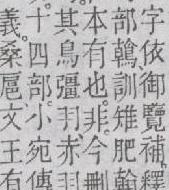 字依御覽補釋
部鶾訓雉肥翰
本有也非今刪
其鳥彊羽赤羽
十四部小宛傳
義桑扈文王有